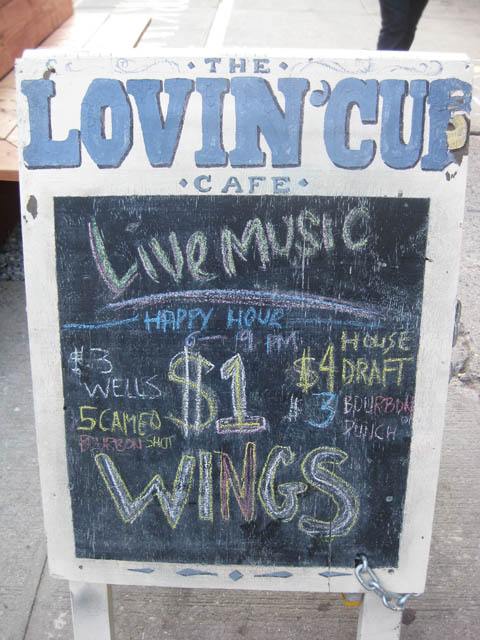 · THE ·
LOVIN' CUP
· CAFE ·
Live MUSIC
HAPPY HOUR
5-9 PM
$3
WELLS
$1
$4 HOUSE
DRAFT
$3 BOURBON
PUNCH
5 CAMEO
BOURBON SHOT
WINGS